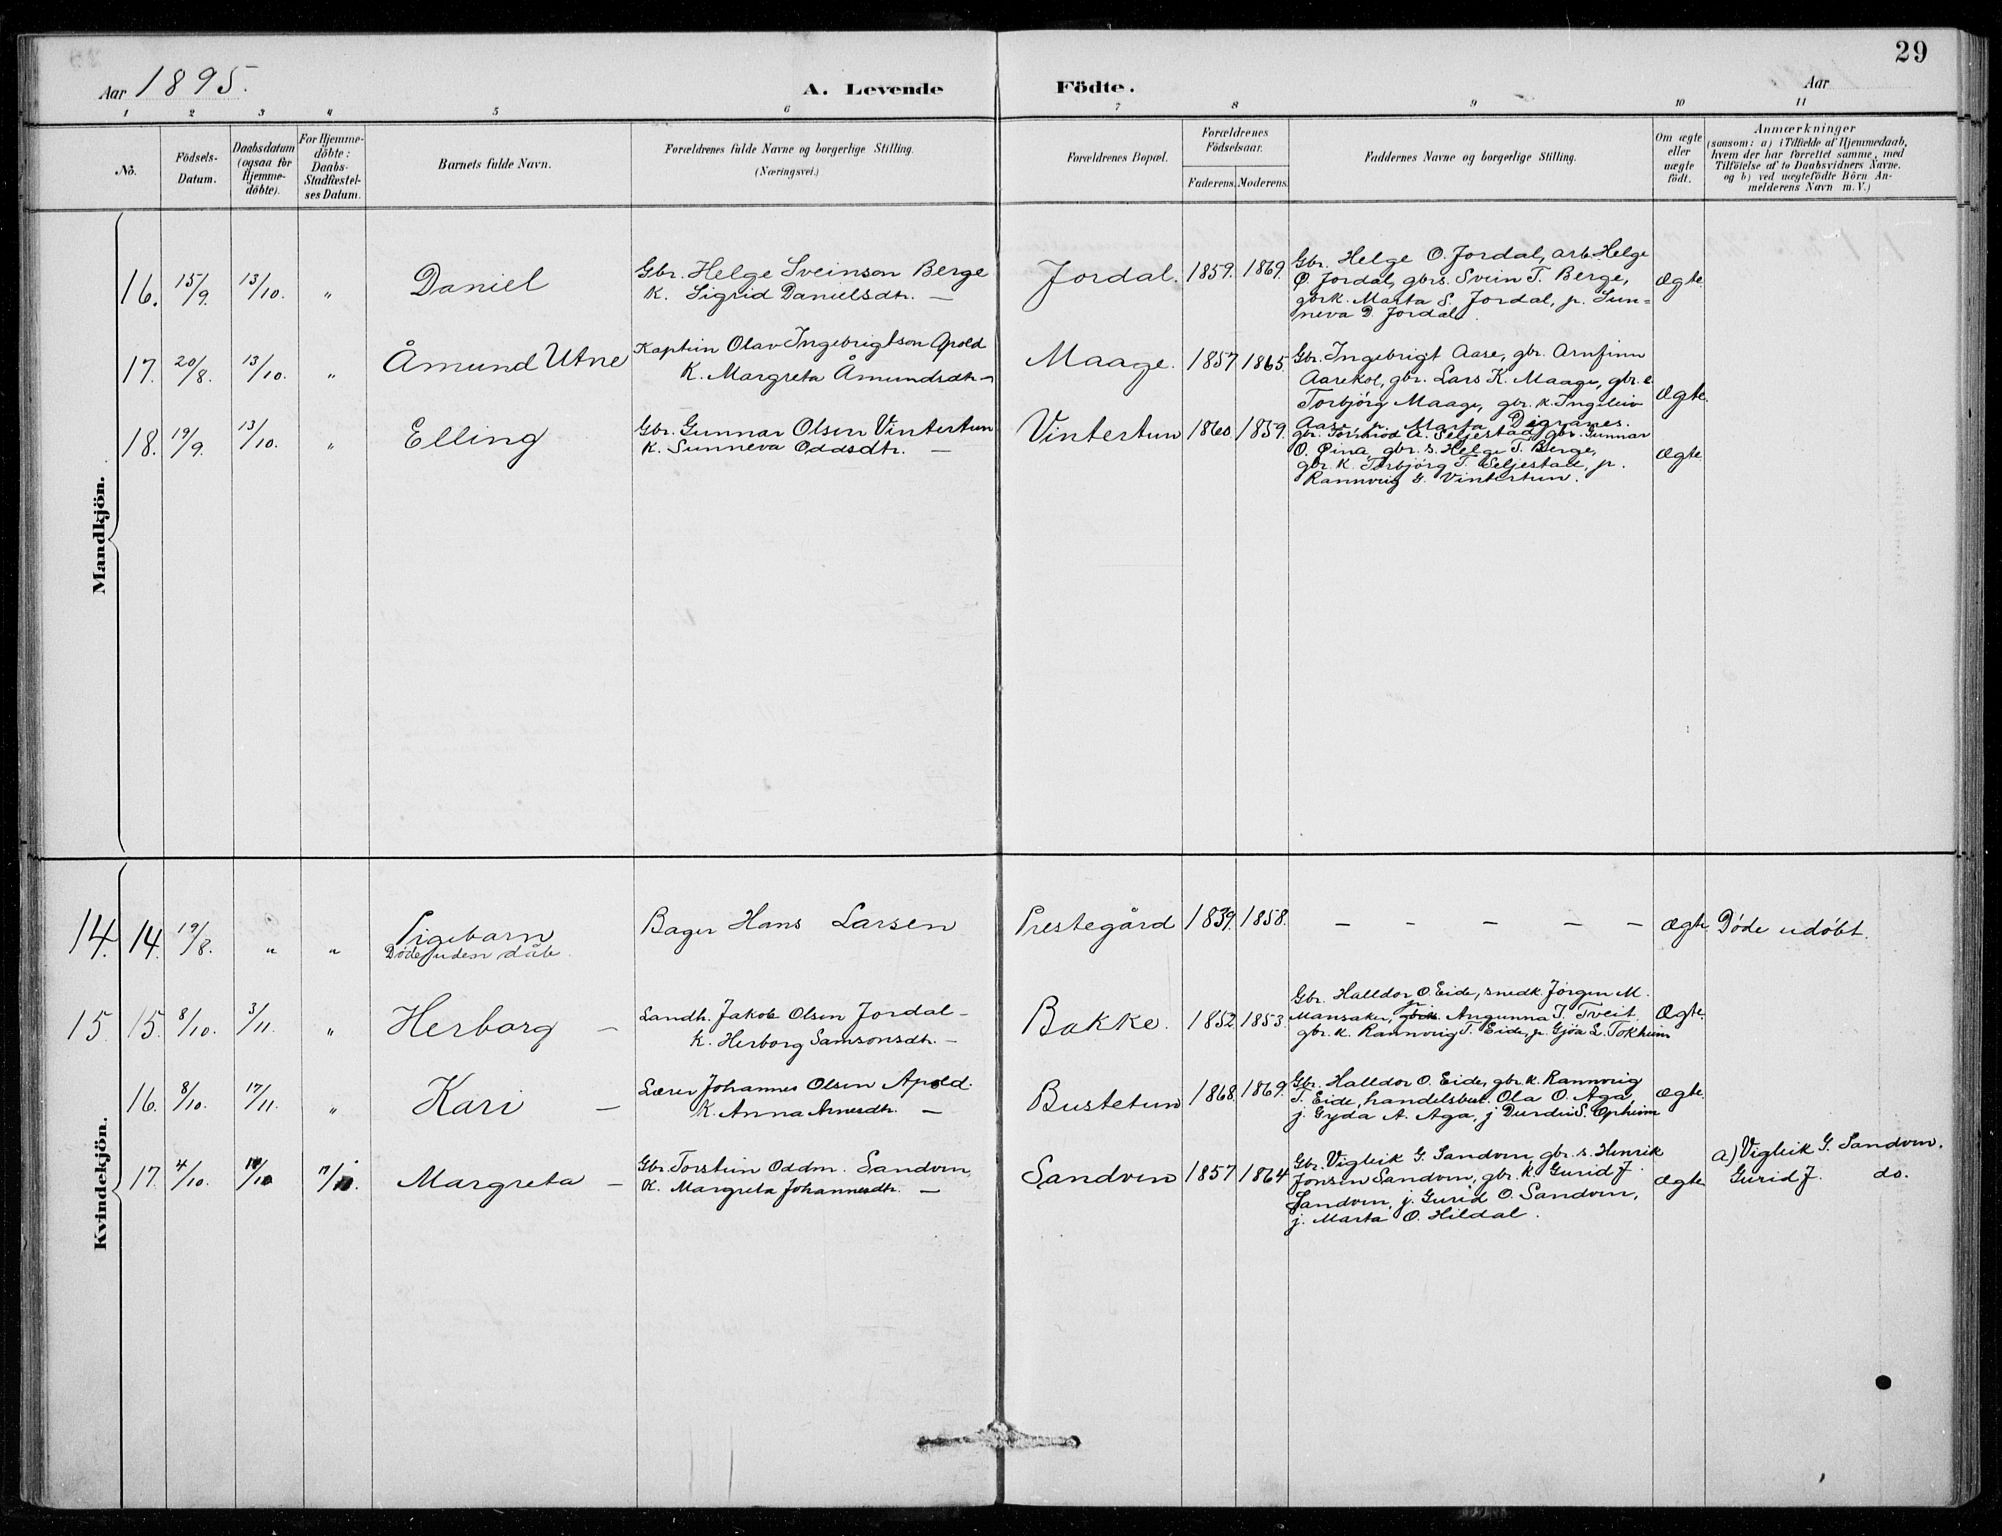 29
Aar 1895.
A. Levende Födte.
Aar
1 2 3 4 5 6 7 8 9 10 11
No.
Födsels-Datum.
Daabsdatum (ogsaa for Hjemme-döbte).
For Hjemme-döbte: Daabs-Stadfæstel-ses Datum.
Barnets fulde Navn.
Forældrenes fulde Navne og borgerlige Stilling.
(Næringsvei.)
Forældrenes Bopæl.
Forældrenes Födselsaar.
Faderens. Moderens.
Faddernes Navne og borgerlige Stilling.
Om ægte eller uægte födt.
Anmærkninger
(saasom: a) i Tilfælde af Hjemmedaab,
hvem der har forrettet samme, med
Tilföielse af to Daabsvidners Navne.
og b) ved uægtefödte Börn An-
melderens Navn m. V.)
Mandkjön.
16. 15/9. 13/10. " Daniel
Gbr. Helge Sveinson Berge
K. Sigrid Danielsdtr. —
Jordal. 1859. 1869.
Gbr. Helge O. Jordal, arb. Helge
Ø. Jordal, gbrs. Svein T. Berge,
gbrk. Marta S. Jordal, p. Sun=
neva D. Jordal.
Ægte.
17. 20/8. 13/10. " Åmund Utne
Kaptein Olav Ingebrigtson Apold
K. Margreta Åmundsdtr —
Maage. 1857 1865.
Gbr. Ingebrigt Aase, gbr. Arnfinn
Aarekol, gbr. Lars K. Maage, gbr. e.
Torbjörg Maage, gbr. K. Ingeleiv
Aase, p. Marta Digranes.
Ægte.
18. 19/9. 13/10. " Elling
Gbr. Gunnar Olsen Vintertun
K. Sunneva Oddsdtr. —
Vintertun 1860 1859.
gbr. Tormod A. Seljestad, gbr. Gunnar
O. Øina, gbr. s. Helge T. Berge,
gbr. K. Torbjörg T. Seljestad, p.
Rannveig G. Vintertun.
Ægte.
Kvindekjön.
14. 14. 19/8. " " Pigebarn
Døde uden dåb.
Bager Hans Larsen
Prestegård 1839. 1858. — — — — — Ægte Døde udøbt.
15 15. 8/10. 3/11. " Herborg —
Landh. Jakob Olsen Jordal —
K. Herborg Samsonsdtr. —
Bakke. 1852 1853.
Gbr. Halldor O. Eide, snedk. Jörgen M.
Mansaker, p. Angunna T. Tveit.
gbr. K. Rannveig T. Eide, p. Gjöa L. Tokheim
Ægte.
16. 8/10. 17/11. " Kari —
Lærer Johannes Olsen Apold.
K. Anna Arnesdtr. —
Bustetun 1868. 1869.
Gbr. Halldor O. Eide, gbr. K. Rannveig
T. Eide, handelsbet. Ola O. Aga,
j. Gyda A. Aga, j Durdei S. Opheim
Ægte.
17. 4/10. Margreta —
Gbr. Torstein Oddm. Sandven,
K. Margreta Johannesdtr. —
Sandven 1857 1864
Gbr. Vigleik G. Sandven, gbr. s. Henrik
Jonsen Sandven, gbr. K. Gurid J.
Sandven, j. Gurid O. Sandven,
j. Marta O. Hildal.
Ægte
a) Vigleik G. Sandven.
Gurid J. do.